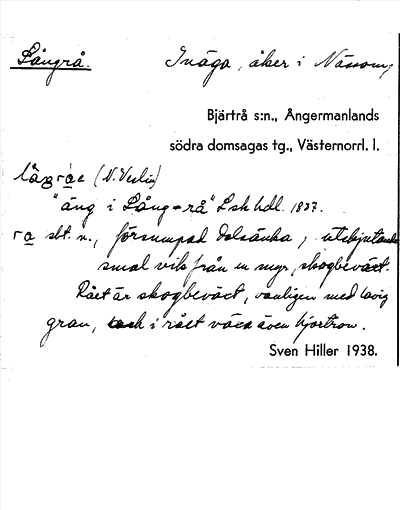 Långrå.
Inäga, åker i Nässom,
Bjärtrå s:n., Ångermanlands
södra domsagas tg., Västernorrl. l.
(N. Veslin)
"äng i Lång=rå" Lskhdl. 1837.
ra sbt. n., försumpad dalsänka; utskjutande
smal vik från en myr, skogbeväxt.
Rået är skogbeväxt, vanligen med lavig
gran, och i rået växa även hjortron.
Sven Hiller 1938.